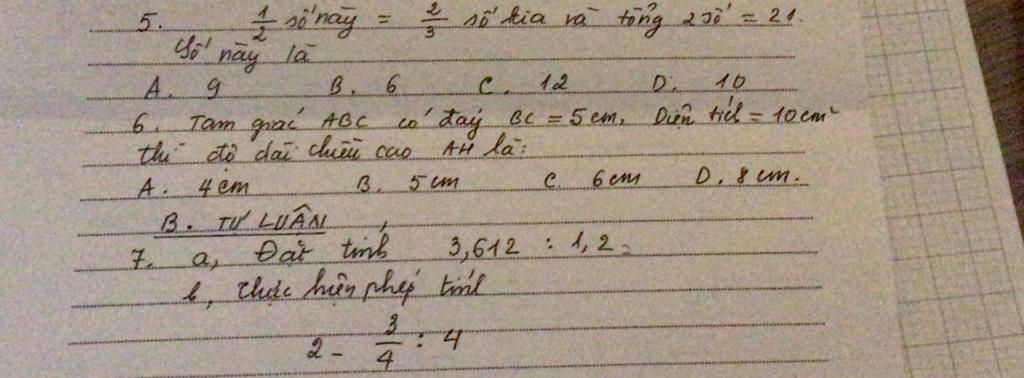 5. 1/2 số này = 2/3 số kia và tổng 2 số = 21.
Số này là
A. 9 B. 6 C. 12 D. 10
6. Tam giác ABC có đáy BC = 5cm, Diện tích = 10cm²
thì độ dài chiều cao AH là:
A. 4cm B. 5cm C. 6cm D. 8cm.
B. TỰ LUẬN
7. a, Đặt tính 3,612 : 1,2 =
b, Thực hiện phép tính
2 - 3/4 : 4